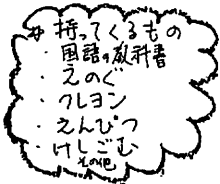 # 持ってくるもの
・国語の教科書
・えのぐ
・クレヨン
・えんぴつ
・けしごむ
その他